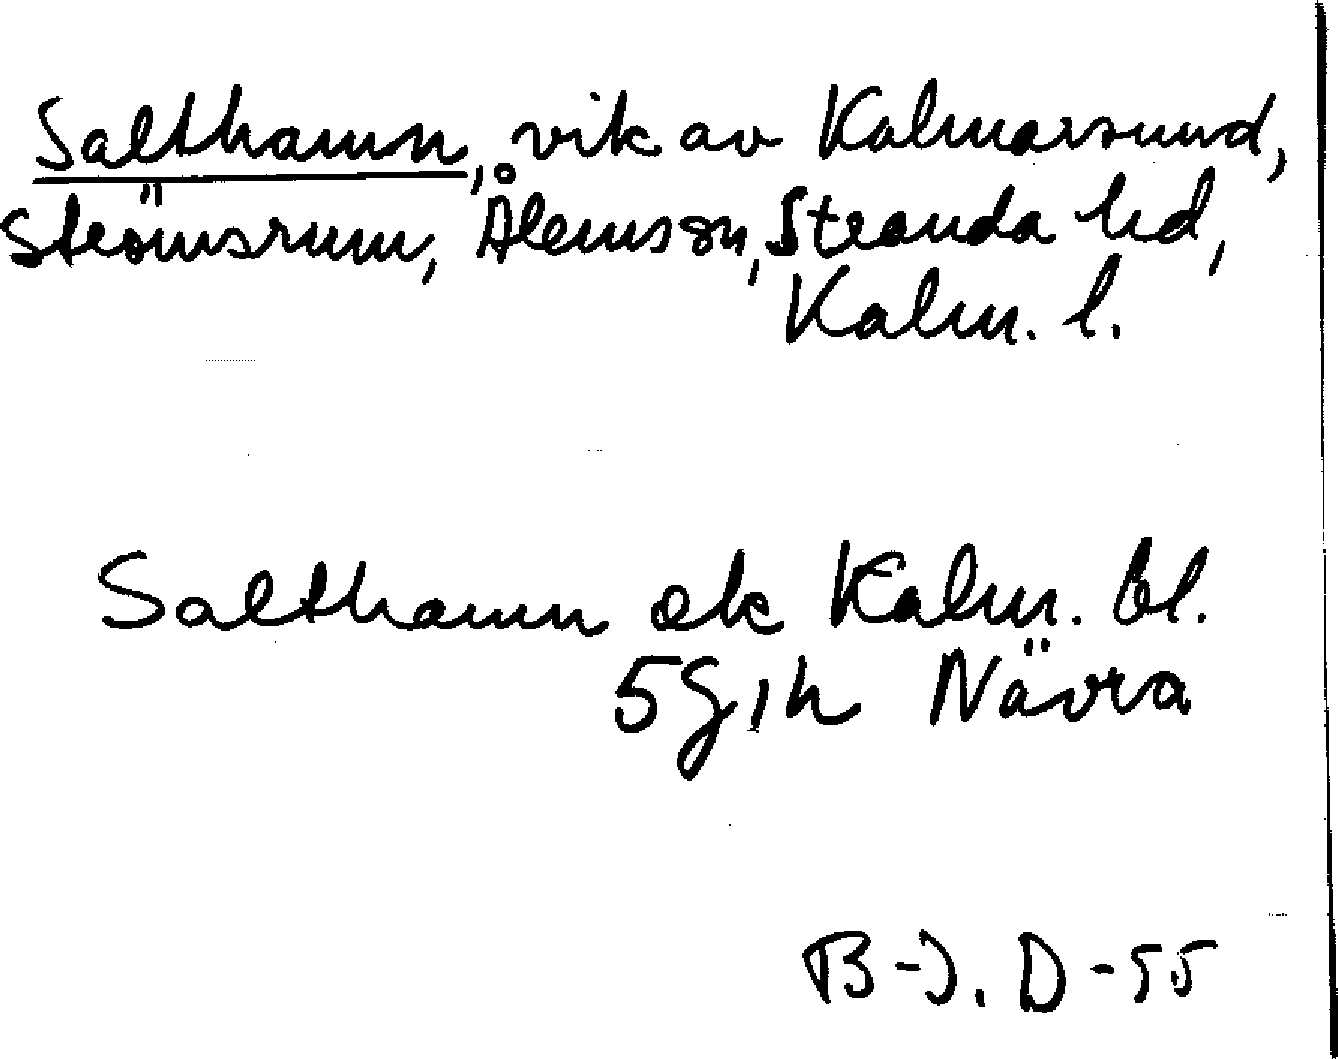 Salthamn, vik av Kalmarsund,
Strömsrum, Ålems sn, Stranda hd,
Kalm. l.
Salthamn ek Kalm. bl.
5G, h Nävra
B-J. D-55